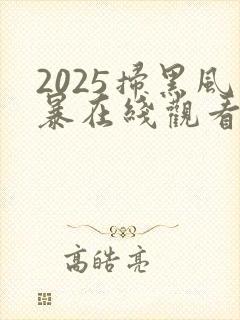 2025掃黑風
暴在綫觀看
高皓亮